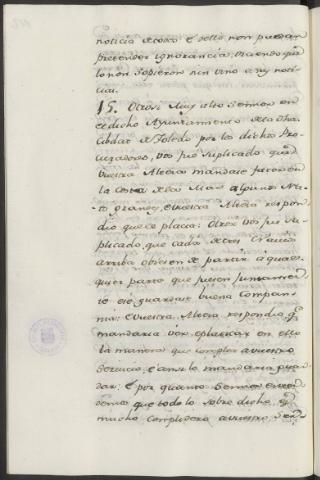 noticia de todo, e dello non puedan
pretender ignorancia, diciendo que
lo non sopieron nin vino a su noti-
cia.
15. Otrosi Muy alto Señor en
el dicho Ayuntamiento de la Cha
Cibdat de Toledo por los dichos Pro-
curadores, vos fue suplicado que
vuestra Merced mandase facer en
la Costa de la Mar algunos Na-
grandes, e vuestra Merced respon-
dio que le placia: Otrosi vos fue su-
plicado, que cada de tres Navios
arriba obiesen de partir a quales-
quier parte que fuesen juntamen-
te e se guardase buena Compan-
nia: E vuestra Merced respondio que
mandaria ver, e platicar en ello
la manera que cumple a vuestro
Servicio, e ansi lo mandaria guar-
dar: E por quanto Señor enten-
demos que todo lo sobre dicho, es
mucho complidero a vuestro Ser-